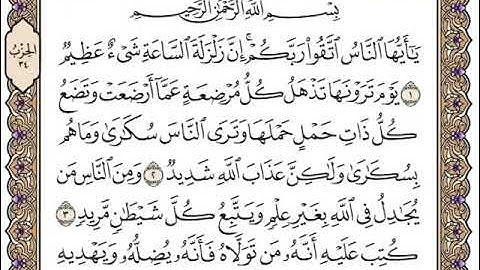 بِسْمِ اللَّهِ الرَّحْمَٰنِ الرَّحِيمِ
يَٰٓأَيُّهَا ٱلنَّاسُ ٱتَّقُوا۟ رَبَّكُمْ ۚ إِنَّ زَلْزَلَةَ ٱلسَّاعَةِ شَىْءٌ عَظِيمٌ
١ يَوْمَ تَرَوْنَهَا تَذْهَلُ كُلُّ مُرْضِعَةٍ عَمَّآ أَرْضَعَتْ وَتَضَعُ
كُلُّ ذَاتِ حَمْلٍ حَمْلَهَا وَتَرَى ٱلنَّاسَ سُكَٰرَىٰ وَمَا هُم
بِسُكَٰرَىٰ وَلَٰكِنَّ عَذَابَ ٱللَّهِ شَدِيدٌ ٢ وَمِنَ ٱلنَّاسِ مَن
يُجَٰدِلُ فِى ٱللَّهِ بِغَيْرِ عِلْمٍ وَيَتَّبِعُ كُلَّ شَيْطَٰنٍ مَّرِيدٍ ٣
كُتِبَ عَلَيْهِ أَنَّهُۥ مَن تَوَلَّاهُ فَأَنَّهُۥ يُضِلُّهُۥ وَيَهْدِيهِ
الحِزْبُ
٣٤